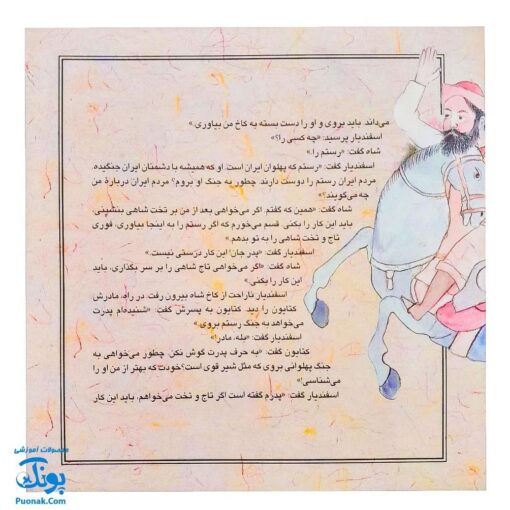 می‌داند. باید بروی و او را دست بسته به کاخ من بیاوری.»
اسفندیار پرسید: «چه کسی را؟»
شاه گفت: «رستم را.»
اسفندیار گفت: «رستم که پهلوان ایران است. او که همیشه با دشمنان ایران جنگیده.
مردم ایران رستم را دوست دارند. چطور به جنگ او بروم؟ مردم ایران دربارهٔ من
چه می‌گویند؟»
شاه گفت: «همین که گفتم. اگر می‌خواهی بعد از من بر تخت شاهی بنشینی،
باید این کار را بکنی. قسم می‌خورم که اگر رستم را به اینجا بیاوری، فوری
تاج و تخت شاهی را به تو بدهم.»
اسفندیار گفت: «پدر جان! این کار درستی نیست.»
شاه گفت: «اگر می‌خواهی تاج شاهی را بر سر بگذاری، باید
این کار را بکنی.»
اسفندیار ناراحت از کاخ شاه بیرون رفت. در راه، مادرش
کتایون را دید. کتایون به پسرش گفت: «شنیده‌ام پدرت
می‌خواهد به جنگ رستم بروی.»
اسفندیار گفت: «بله، مادر!»
کتایون گفت: «به حرف پدرت گوش نکن. چطور می‌خواهی به
جنگ پهلوانی بروی که مثل شیر قوی است؟ خودت که بهتر از من او را
می‌شناسی!»
اسفندیار گفت: «پدرم گفته است اگر تاج و تخت می‌خواهم، باید این کار
محصولات آموزشی
پونک
Puonak.Com